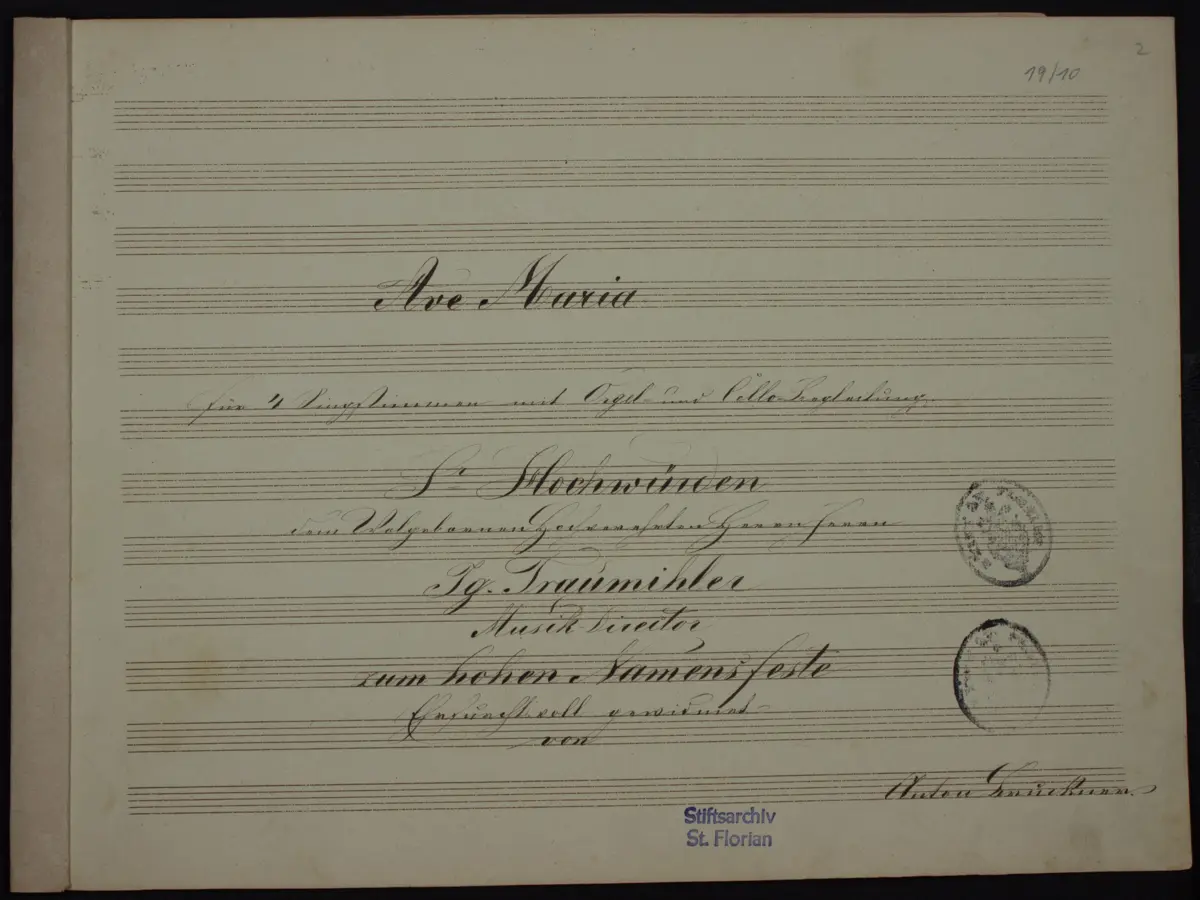 2
19/10
Ave Maria
für 4 Singstimmen mit Orgel- und Cello-Begleitung.
Sr Hochwürden
dem Wolgebornen Hochverehrten Herrn Herrn
Ig. Traumihler
Musik-Director
zum hohen Namensfeste
Ehrfurchtsvoll gewidmet
von
Anton Bruckner.
Stiftsarchiv
St. Florian